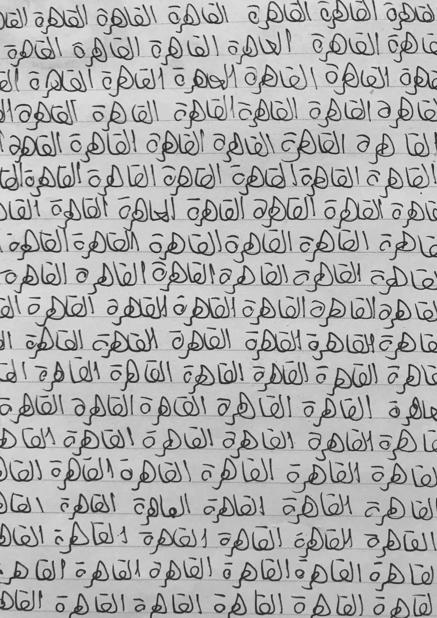 القاهرة القاهرة القاهرة القاهرة
القاهرة القاهرة القاهرة القاهرة القاهرة
القاهرة القاهرة القاهرة القاهرة القاهرة
القاهرة القاهرة القاهرة القاهرة القاهرة
القاهرة القاهرة القاهرة القاهرة القاهرة
القاهرة القاهرة القاهرة القاهرة القاهرة
القاهرة القاهرة القاهرة القاهرة القاهرة
القاهرة القاهرة القاهرة القاهرة القاهرة
القاهرة القاهرة القاهرة القاهرة القاهرة
القاهرة القاهرة القاهرة القاهرة القاهرة
القاهرة القاهرة القاهرة القاهرة القاهرة
القاهرة القاهرة القاهرة القاهرة القاهرة
القاهرة القاهرة القاهرة القاهرة القاهرة
القاهرة القاهرة القاهرة القاهرة
القاهرة القاهرة القاهرة القاهرة
القاهرة القاهرة القاهرة القاهرة
القاهرة القاهرة القاهرة القاهرة
القاهرة القاهرة القاهرة القاهرة القاهرة
القاهرة القاهرة القاهرة القاهرة